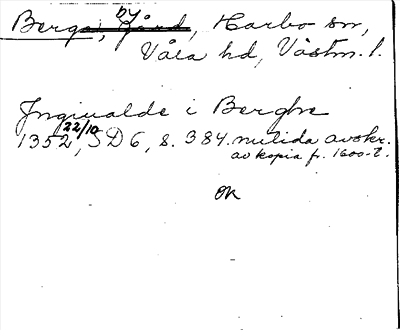 Berga, by, Harbo sn,
Våla hd, Västm. l.
Ingiualde i Berghe
1352 22/10, SD 6, s. 384. nutida avskr.
av kopia fr. 1600-t.
OK